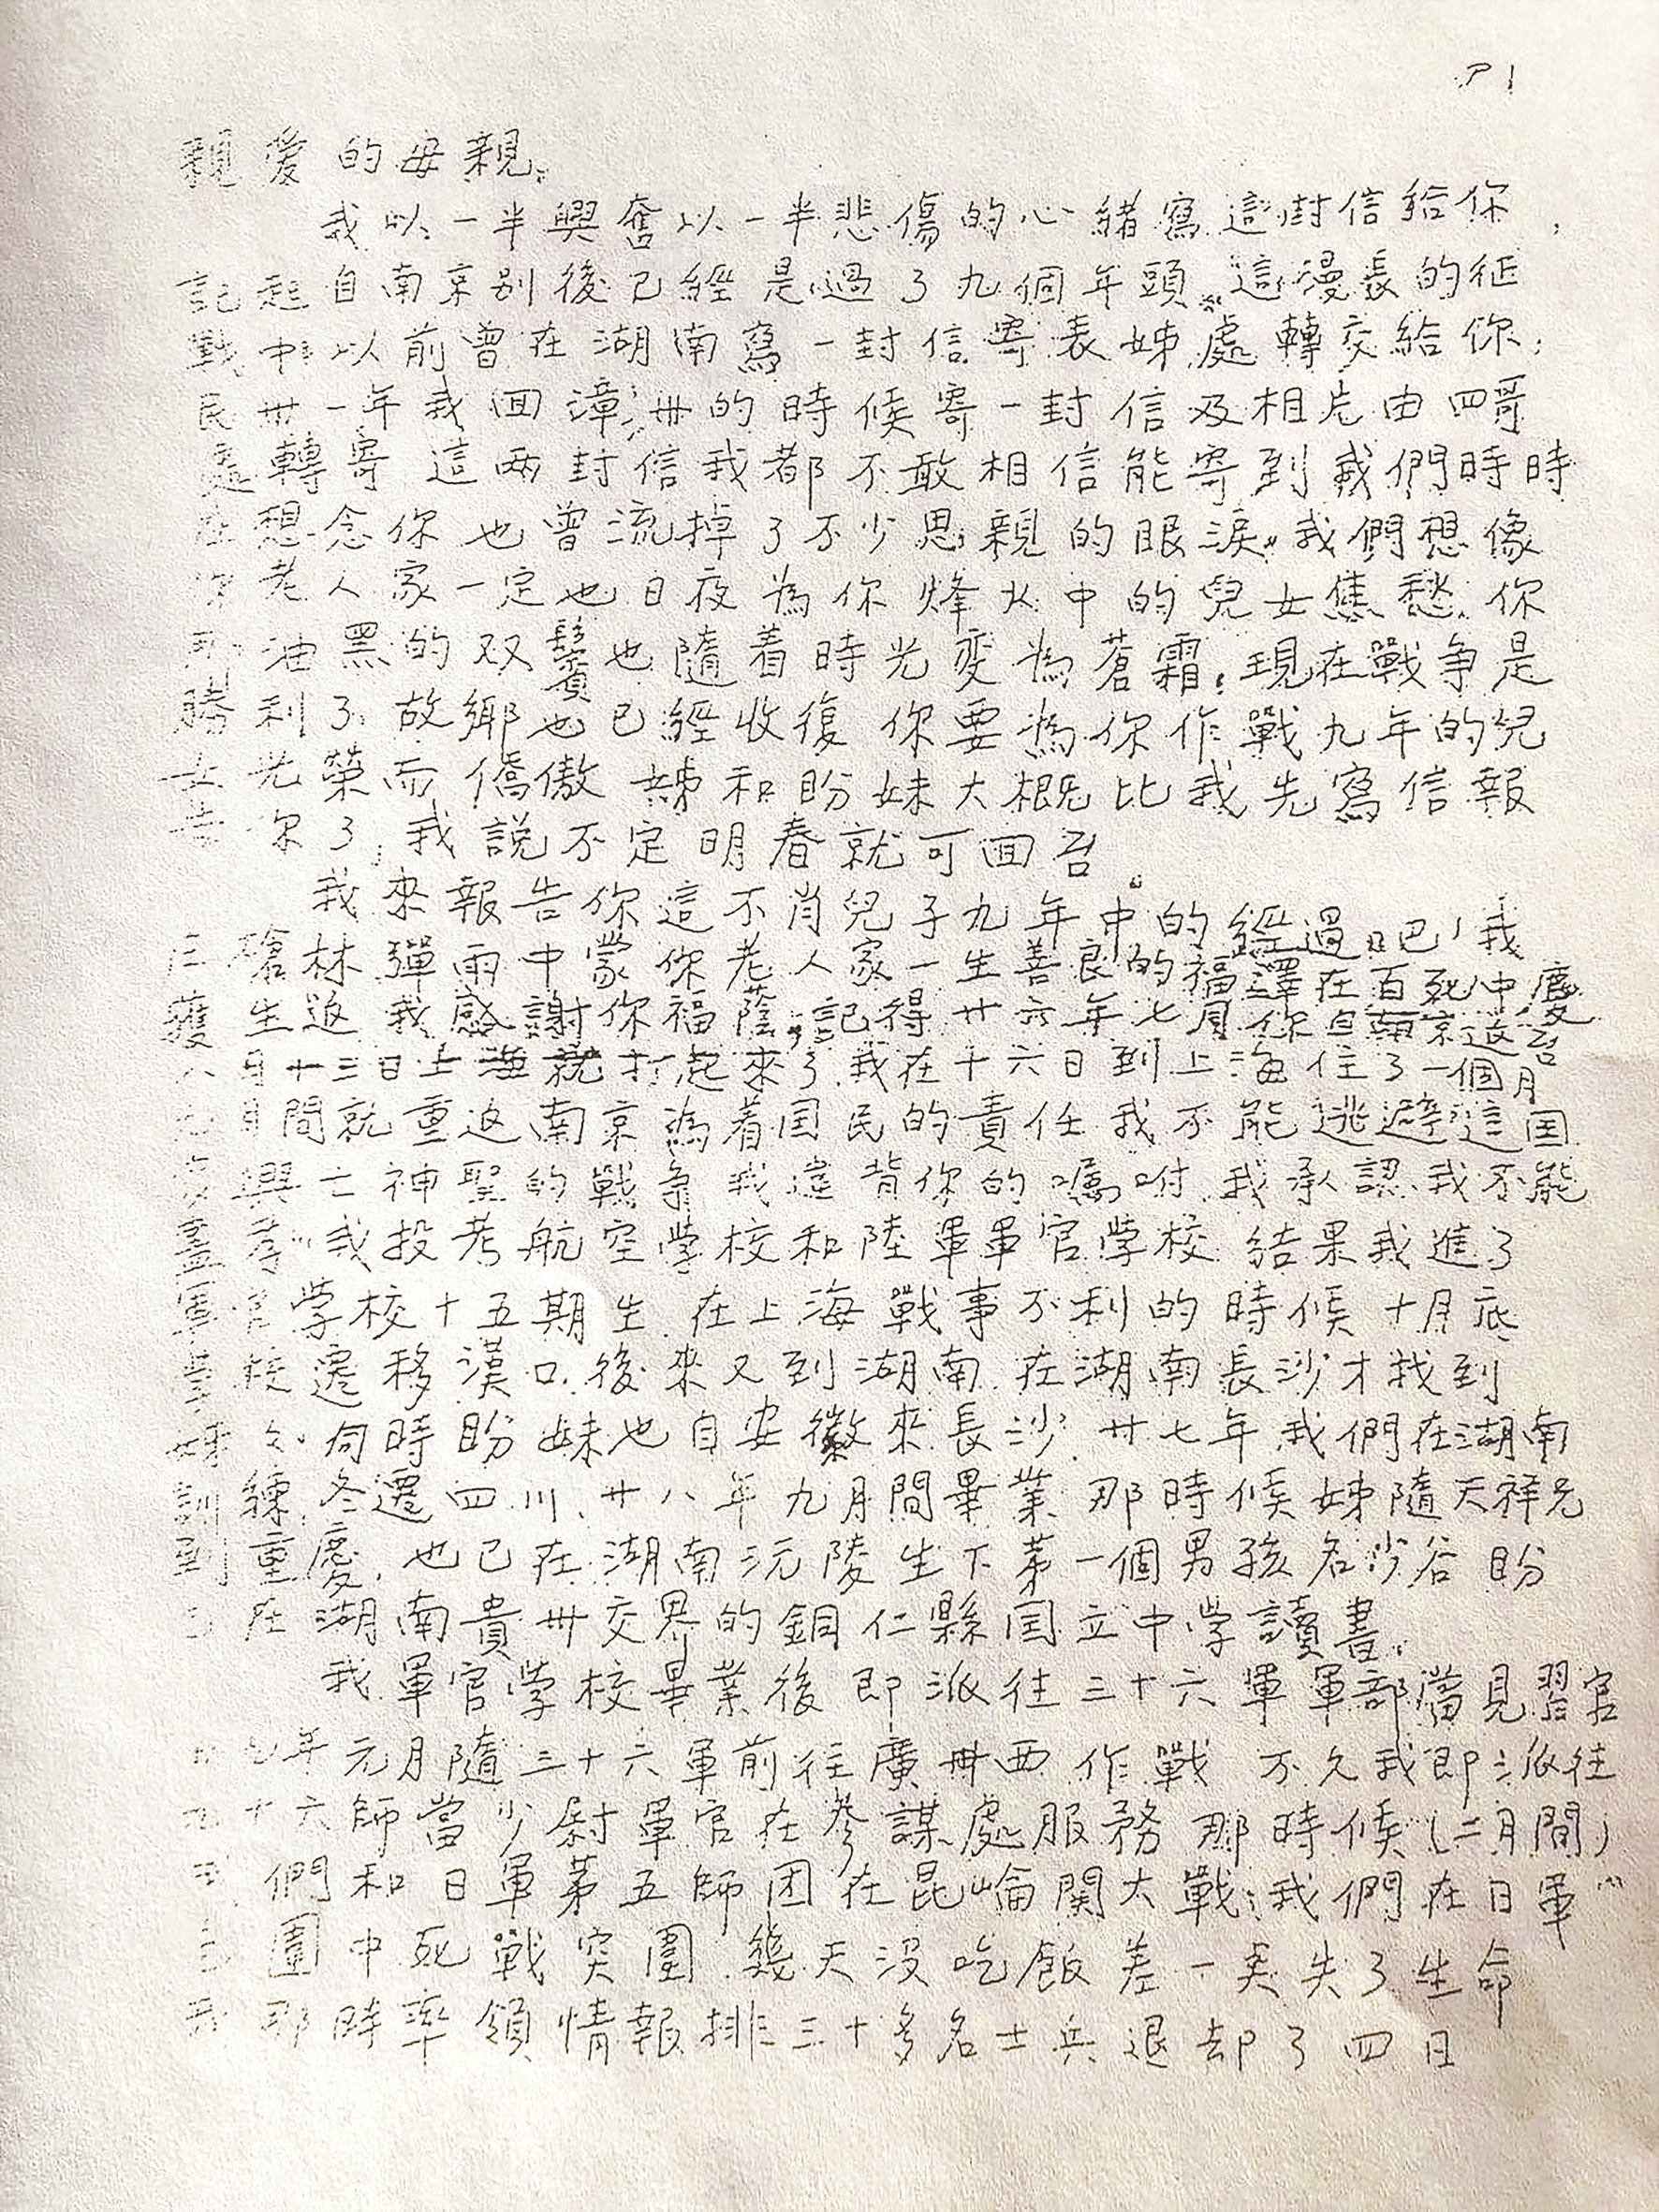 P1
親愛的母親。
我以一半興奮以一半悲傷的心緒寫這封信給你,
記起自南京别後已經是過了九個年頭。這漫長的征
戰中以前曾在湖南寫一封信寄表姊處轉交給你,
民卅一年我回漳卅的時候寄一封信及相片由四哥
處轉寄 這两封信我都不敢相信能寄到 我們時時
在想念你也曾流掉了不少思親的眼淚。我們想像
你老人家一定也日夜為你烽火中的兒女焦愁 你
那油黑的双鬢也隨着時光变為蒼霜。現在戰争是
勝利了 故鄉也已經收復 你要為你作戰九年的兒
女光榮而僑傲 姊和盼妹大概比我先寫信報
告你了,我說不定明春就可回台。
我來報告你這不肖兒子九年中的經過吧!我
在槍林彈雨中蒙你老人家一生善良的福澤在百死中慶
獲生返 我感謝你福蔭。記得廿六年七月你自南京返台
八月十三日上海就打起來了 我在十六日到上海住了一個月
九月間就重返南京 為着国民的責任我不能逃避這国
家興亡神聖的戰争 我違背你的囑咐 我承認我不能
盡孝 我投考航空学校和陸軍軍官学校 結果我進了
軍官学校十五期生 在上海戰事不利的時候 十月底
学校遷移漢口 後來又到湖南 在湖南長沙才找到
姊 同時盼妹也自安徽來長沙 廿七年我們在湖南
訓練,冬遷四川 廿八年九月間畢業 那時候姊隨天祥兄
到重慶,也已在湖南沅陵生下茅一個男孩名沙谷 盼
已在湖南貴卅交界的銅仁縣国立中学讀書。
我軍官学校畢業後 即派往三十六軍軍部當見習官
七年元月隨三十六軍前往廣卅西作戰 不久我即派往
十六師當少尉軍官在參謀處服務 那時候(二月間)
我們和日軍茅五師团在昆崙関大戰 我們在日軍
包圍中死戰突圍 幾天没吃飯 差一奌失了生命
我那時率領情報排三十多名士兵退却了四日